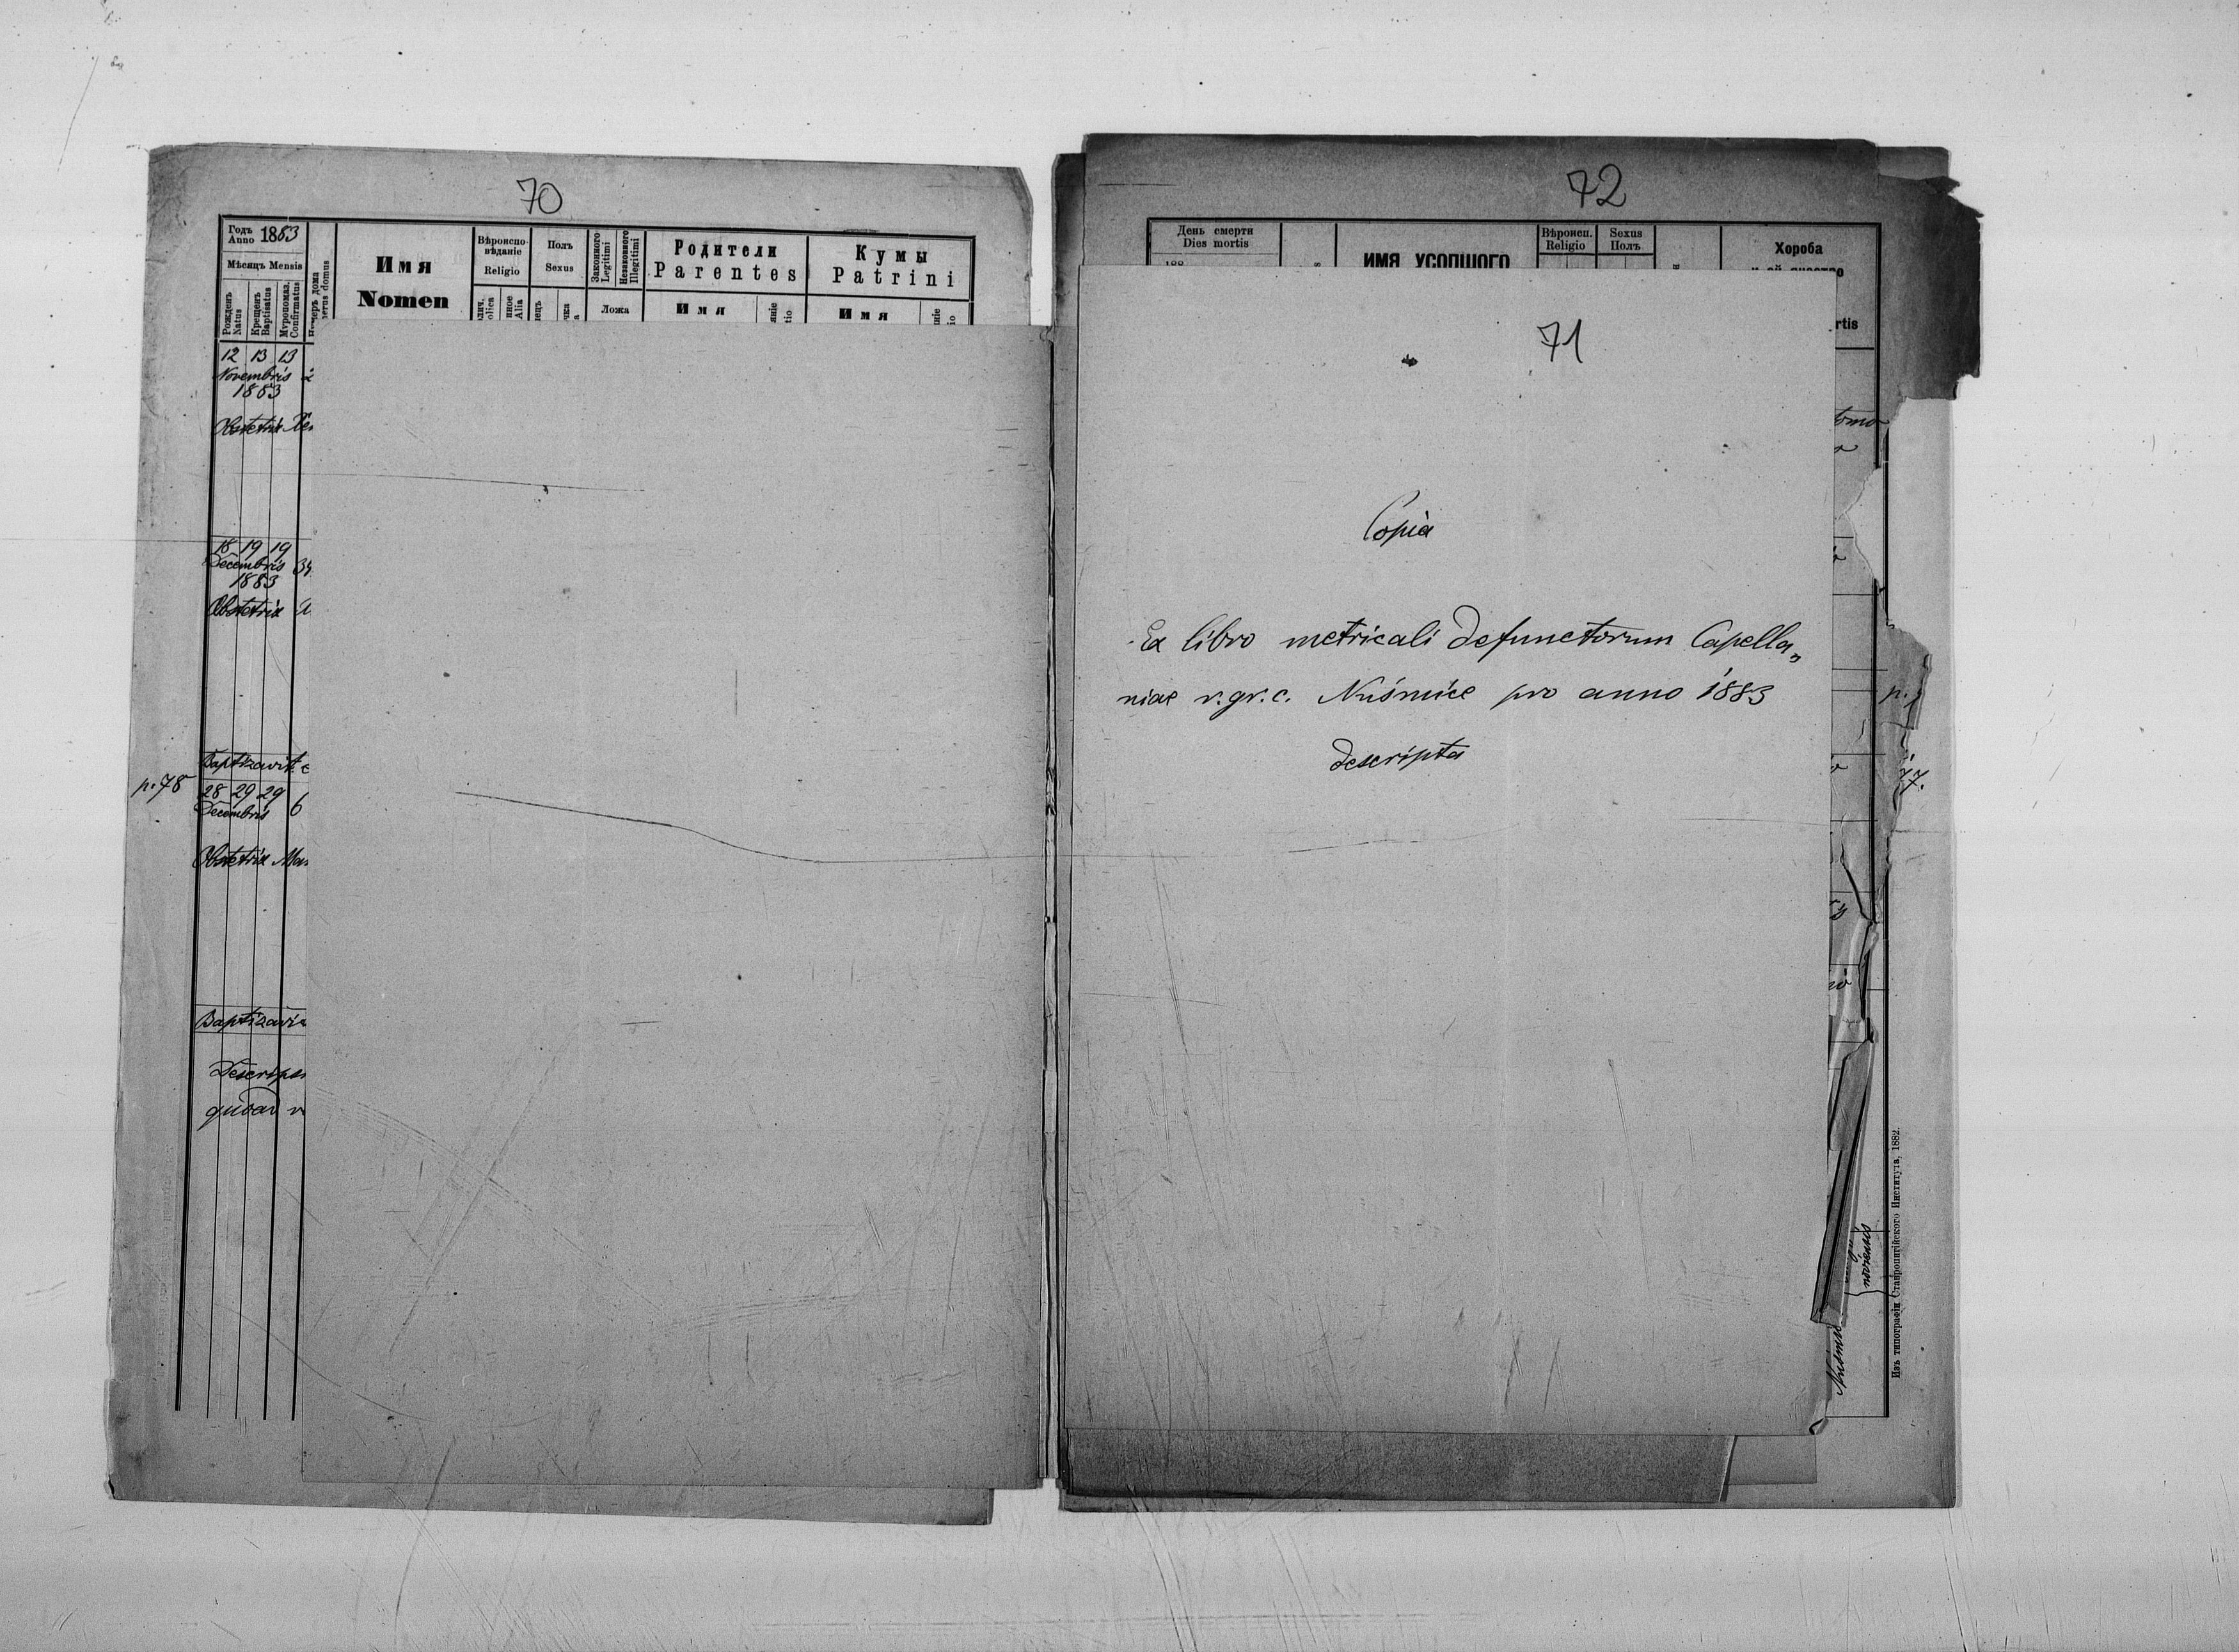 70
Годъ
Anno 1883
Мѣсяцъ Mensis
Рожденъ
Natus
Крещенъ
Baptisatus
Мѵропомаз.
Confirmatus
Имя
Nomen
Вѣроиспо-
вѣданіе
Religio
Полъ
Sexus
Законного
Legitimi
Незаконного
Illegitimi
Ложа
Родители
Parentes
Имя
Кумы
Patrini
Имя
12 13 13
Novembris
1883
Obstetrix
18 19 19
Decembris 34
1883
Obstetrix
Baptizavit
p. 78
28 29 29
Decembris 6
Obstetrix
72
День смерти
Dies mortis
ИМЯ УСОПШОГО
Вѣроисп.
Religio
Sexus
Полъ
Хороба
71
Copia
Ex libro metricali defunctorum Capella„
niae r. gr. c. Nuśmice pro anno 1883
descripta
77.
Изъ типографіи Ставропигійского Института, 1882.